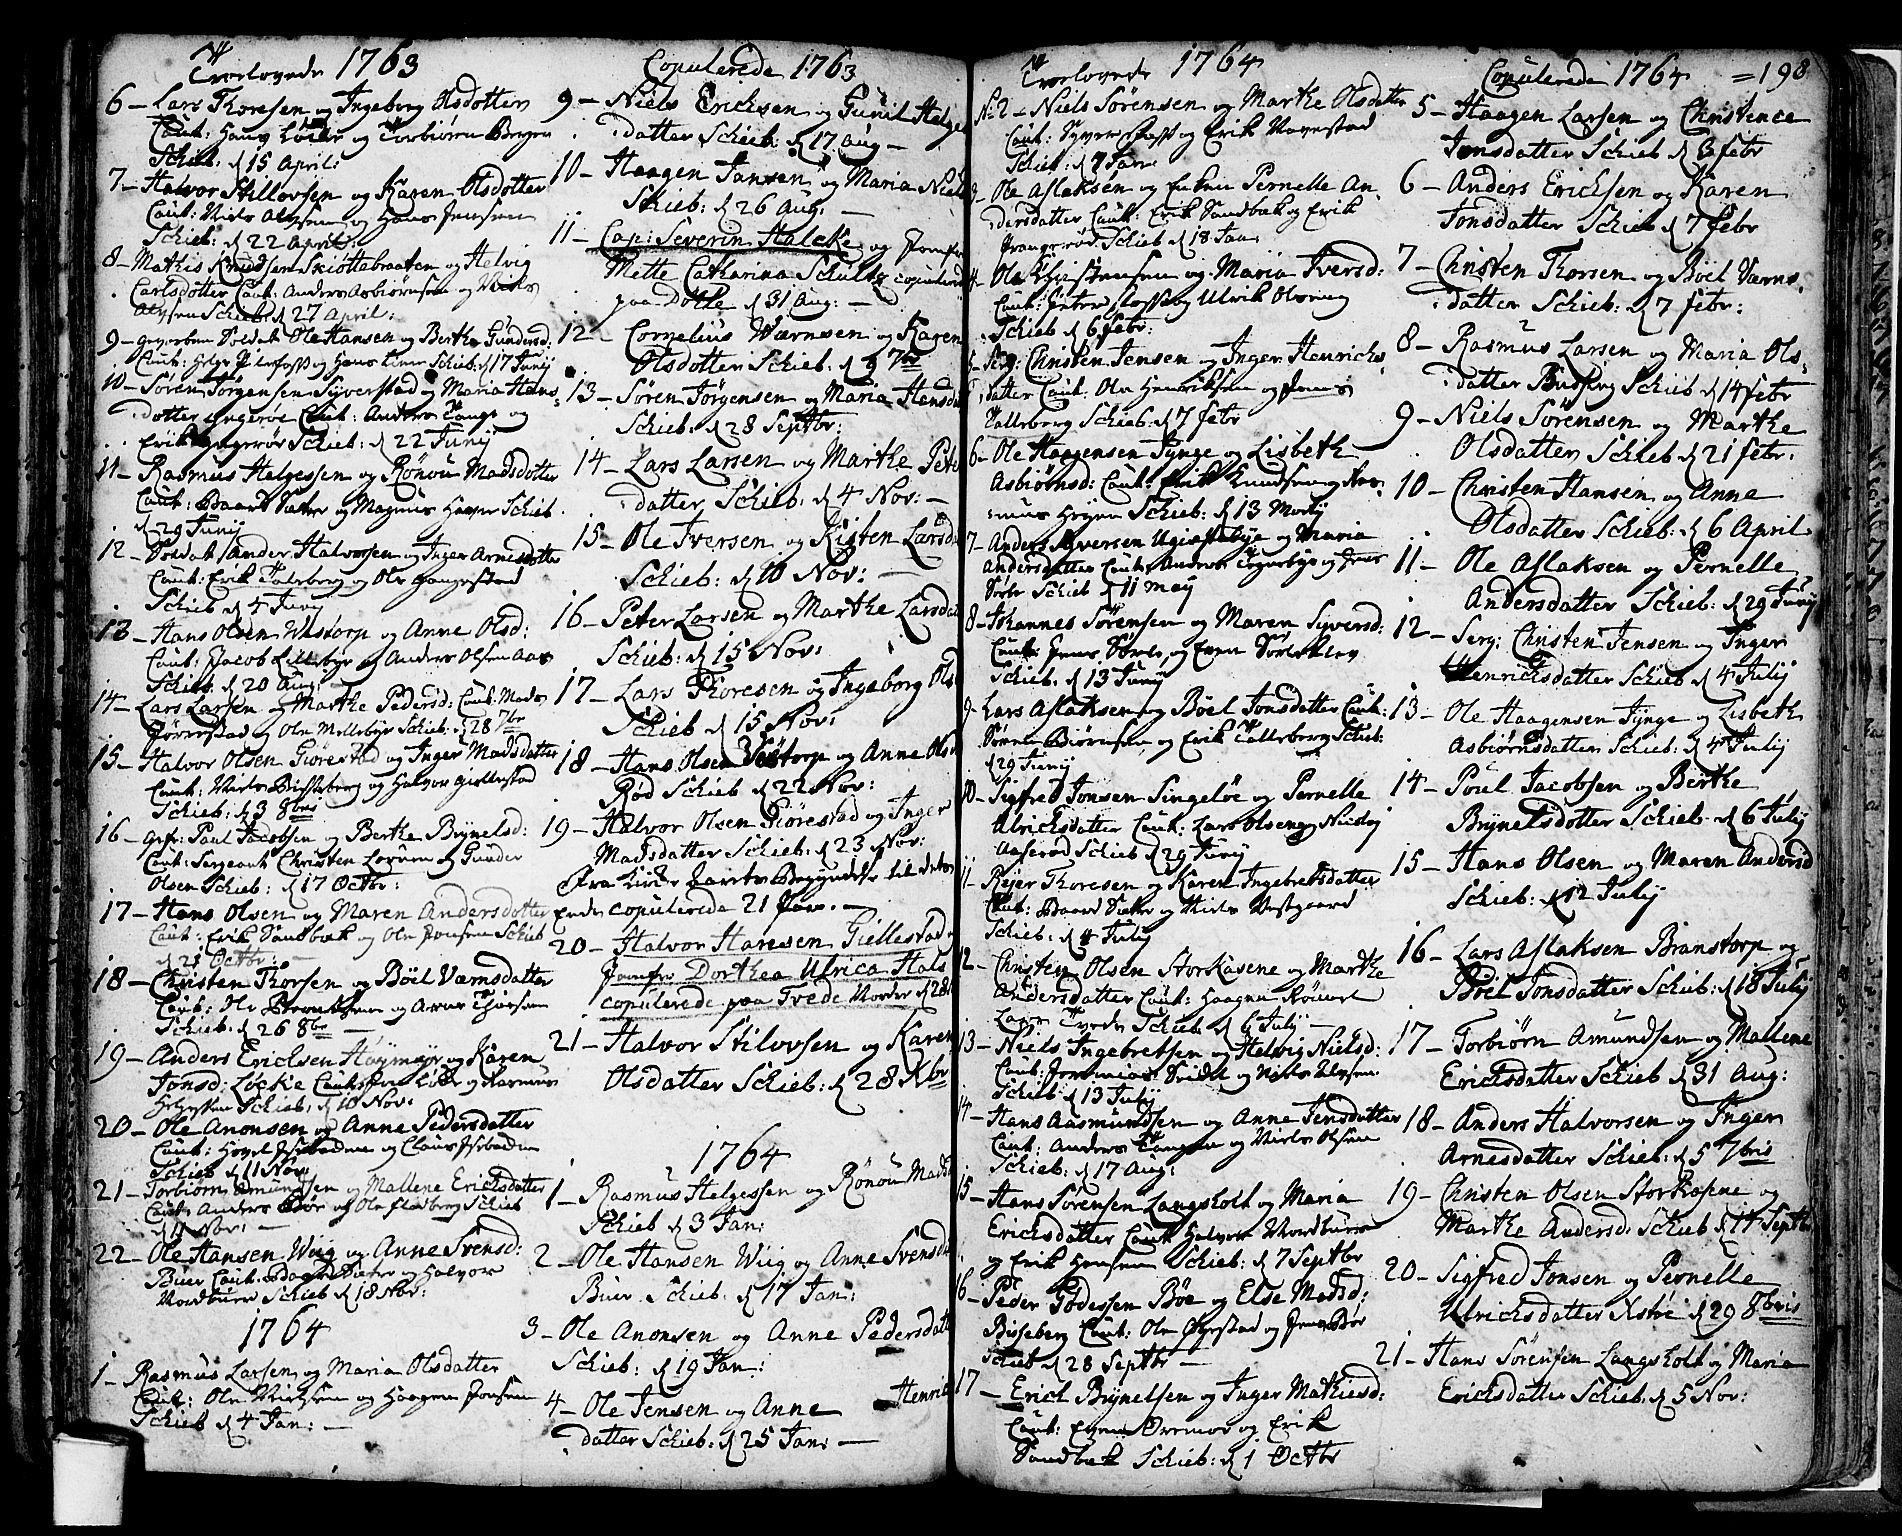 Trolovede 1763
6 – Lars Thoresen og Ingeborg Olsdotter
Caut: Hans Löcke og Torbiörn Bergen
Schieb: d 15 April:
7 – Halvor Stillovsen og Karen Olsdotter
Caut: Niels Alysen og Hans Jensen
Schieb: d 22 April:
8 – Mathis Knudsen Skiöttebraaten og Helvig
Carlsdotter Caut: Anders Asbiörnsen og Niels
Alysen Schieb: d 27 April:
9 – Soldat Ole Hansen og Berthe Gundersd:
Caut: Helge og Hans Schieb: d 17 Junij
10 – Sören Jörgensen Syverstad og Maria Hans-
dotter Ingeröe Caut: Anders Tange og
Erik Ingeröe Schieb: d 22 Junij
11 – Rasmus Helgessen og Rönou Madsdotter
Caut: Baard Sæter og Magnus Schieb
d 29 Junij
12 – Soldat Ander Halvorsen og Inger Arnesdotter
Caut: Erik Taleberg og Ole
Schieb d 4 July
13 – Hans Olsen Wistorp og Anne Olsd:
Caut: Jacob Lillebye og Anders Olsen Aas
Schieb: d 20 Aug:
14 – Lars Larsen og Marthe Pedersd: Caut: Mads
og Ole Mellebye Schieb: d 28 7br
15 – Halvor Olsen Giörestad og Inger Madsdatter
Caut: Niels Bisseberg og Halvor Giellestad
Schieb: d 3 8bris
16 – Paul Jacobsen og Berthe Brynelsd:
Caut: Sergeant Christen og Gunder
Olsen Schieb: d 17 Octbr:
17 – Hans Olsen og Maren Andersdotter
Caut: Erik Sandbæk og Ole Jensen Schieb
d 21 Octbr: –
18 – Christen Thorsen og Böel Værnsdatter
Caut: Ole og Thorsen
Schieb: d 26 8br –
19 – Anders Ericksen Höymyr og Karen
Jonsd: Löcke Caut: og Rasmus
Helgessen Schieb: d 10 Nov:
20 – Ole Anonsen og Anne Pedersdatter
Caut: Isebaden og Claus Isebaden
Schieb d 11 Nov:
21 – Torbiörn Amundsen og Mallene Ericksdatter
Caut: Anders Bör og Ole Flodberg Schieb
d 11 Nov: –
22 – Ole Hansen Wiig og Anne Svensd:
Buer Caut: Baard Sæter og Halvor
Nordbuer Schieb d 18 Nov:
1764
1 – Rasmus Larsen og Maria Olsdatter
Caut: Ole Nielsen og Haagen Jensen
Schieb d 4 Jan: –
Copulerede 1763
9 – Niels Ericksen og Gunil Helges
datter Schieb: d 17 Aug –
10 – Haagen Jansen og Maria Niels
Schieb: d 26 Aug: –
11 – Cap: Severin Halcke og Jomfr
Mette Catharina Schults copulered
paa d 31 Aug: –
12 – Cornelius Wærnsen og Karen
Olsdotter Schieb: d 9 7br
13 – Sören Jörgensen og Maria Hansda
Schieb: d 28 Septbr:
14 – Lars Larsen og Marthe Peter
datter Schieb: d 4 Nov: –
15 – Ole Iversen og Kisten Larsda
Schieb: d 10 Nov: –
16 – Peter Larsen og Marthe Larsdat
Schieb: d 15 Nov:
17 – Lars Thoresen og Ingeborg Ols
Schieb d 15 Nov:
18 – Hans Olsen Wistorp og Anne Olsd
Röd Schieb d 22 Nov:
19 – Halvor Olsen Giörestad og Inger
Madsdatter Schieb: d 23 Nov:
Fra Kirke Aarets Begyndelse til dets
Ende copulerede 21 Par. –
20 – Halvor Hansen Giellestad
Jomfr Dorthea Ulrica Hals
copulerede paa Tvede Norder d 28
21 – Halvor Stilovsen og Karen
Olsdatter Schieb: d 28 Xbr
1764
1 – Rasmus Helgessen og Rönou Madsd
Schieb d 3 Jan:
2 – Ole Hansen Wiig og Anne Svensd
Buer Schieb: d 17 Jan:
3 – Ole Anonsen og Anne Pedersdatt
Schieb: d 19 Jan:
4 – Ole Jensen og Anne Henrich
datter Schieb: d 25 Jan: –
Trolovede 1764
No 2 – Niels Sörensen og Marthe Olsdatter
Caut: Syver og Erik Navestad
Schieb: d 7 Jan:
3 – Ole Aslaksen og Enken Pernelle An
dersdatter Caut: Erik Sandbæk og Erik
Schieb d 18 Jan:
4 – Ole Christensen og Maria Iversd:
Caut: Peter og Ulrik Olsen
Schieb d 6 febr:
5 – Serg: Christen Jensen og Inger Henrichs
datter Caut: Ole Henriksen og Jens
Talleberg Schieb: d 7 febr
6 – Ole Haagensen Tynge og Lisbeth
Asbiörnsd: Caut: Erik Knudsen og Ras-
mus Schieb: d 13 Martij
7 – Anders Syversen og Maria
Andersdatter Caut: Anders og Jens
Sörbr Schieb d 11 May
8 – Johannes Sörensen og Maren Syversd:
Caut: Jens Sörbr og Even
Schieb: d 13 Junij
9 – Lars Aslaksen og Böel Jonsdatter Caut:
Sören Biörnsen og Erik Talleberg Schieb:
d 29 Junij
10 – Sigfred Jonsen Singelöe og Pernelle
Ulricksdatter Caut: Lars Olsen og Nicolaj
Aaseröd Schieb d 29 Junij
11 – Rejer Thoresen og Karen Ingebretsdatter
Caut: Baard Sæter og Niels Vestgaard
Schieb: d 4 Julij
12 – Christen Olsen Storkasene og Marthe
Andersdatter Caut: Haagen
Lars Tvede Schieb d 6 Julij –
13 – Niels Ingebretsen og Helvig Nielsd:
Caut: Jeremias og Niels Alysen
Schieb d 13 Julij
14 – Hans Aasmundsen og Anne Jensdatter
Caut: Anders Tangen og Niels Olsen
Schieb: d 17 Aug:
15 – Hans Sörensen Langsholt og Maria
Ericksdatter Caut: Halvor Nordbuer
og Erik Hansen Schieb: d 7 Septbr
16 – Peder Godessen Böe og Else Madsd:
Bisseberg Caut: Ole og Jens Bör
Schieb d 28 Septbr –
17 – Erich Brynelsen og Inger Mathiesd:
Caut: Even og Erik
Sandbæk Schieb: d 1 Octbr
Copulerede 1764 =198
5 – Haagen Larsen og Christence
Jonsdatter Schieb d 3 febr
6 – Anders Ericksen og Karen
Jonsdatter Schieb: d 7 febr
7 – Christen Thorsen og Böel Værns-
datter Schieb: d 7 febr:
8 – Rasmus Larsen og Maria Ols-
datter Schieb d 14 febr
9 – Niels Sörensen og Marthe
Olsdatter Schieb d 21 febr:
10 – Christen Hansen og Anne
Olsdatter Schieb: d 6 April
11 – Ole Aslaksen og Pernelle
Andersdatter Schieb: d 29 Junij
12 – Serg: Christen Jensen og Inger
Henricksdatter Schieb d 4 Julij
13 – Ole Haagensen Tynge og Lisbeth
Asbiörnsdatter Schieb: d 4 Julij
14 – Poul Jacobsen og Berthe
Brynelsdotter Schieb: d 6 Julij
15 – Hans Olsen og Maren Andersd
Schieb: d 12 Julij
16 – Lars Aslaksen Branstorp og
Böel Jonsdatter Schieb: d 18 Julij
17 – Torbiörn Amundsen og Mallene
Ericksdatter Schieb d 31 Aug:
18 – Anders Halvorsen og Inger
Arnesdatter Schieb: d 5 7bris
19 – Christen Olsen Storkasene og
Marthe Andersd: Schieb d 14 Septbr
20 – Sigfred Jonsen og Pernelle
Ulricksdatter d 29 8bris
21 – Hans Sörensen Langsholt og Maria
Ericksdatter Schieb: d 5 Nov: